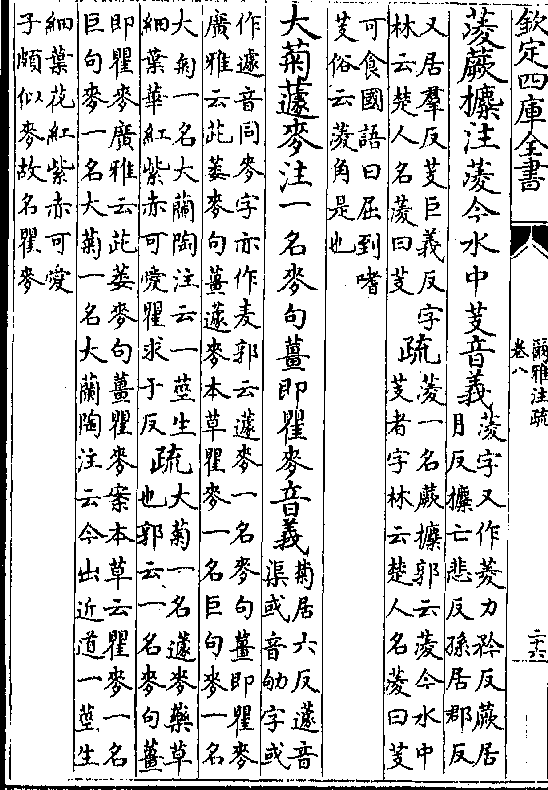 欽定四庫全書
爾雅注疏
卷八
二十六
蔆蕨攗注蔆今水中芰音義
蔆字又作菱力矜反蕨居
月反攗亡悲反孫居郡反
又居羣反芰巨義反字
林云楚人名蔆曰芰
疏
蔆一名蕨攗郭云蔆今水中
芰者字林云楚人名蔆曰芰
可食國語曰屈到嗜
芰俗云蔆角是也
大菊蘧麥注一名麥句薑即瞿麥音義
菊居六反蘧音
渠或音劬字或
作遽音同麥字亦作麦郭云蘧麥一名麥句薑即瞿麥
廣雅云茈萎麥句薑蘧麥本草瞿麥一名巨句麥一名
大菊一名大蘭陶注云一莖生
細葉華紅紫赤可愛瞿求于反
疏
大菊一名蘧麥藥草
也郭云一名麥句薑
即瞿麥廣雅云茈萎麥句薑瞿麥案本草云瞿麥一名
巨句麥一名大菊一名大蘭陶注云今出近道一莖生
細葉花紅紫赤可愛
子頗似麥故名瞿麥